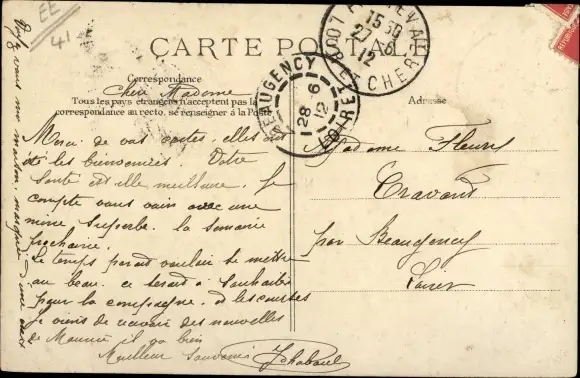 EE
41
CARTE POSTALE
Correspondance
Tous les pays étrangers n'acceptent pas la
correspondance au recto, se renseigner à la Poste
Adresse
LOIR-ET-CHER
15 30
27 - 6
12
BEAUGENCY
LOIRET
28 - 6
12
Chère Madame
Merci de vos cartes, elles ont
été les bienvenues. Votre
santé est elle meilleure. Je
compte vous voir avec une
mine superbe. la semaine
prochaine.
Le temps parait vouloir se mettre
au beau. ce serait à souhaiter
pour la campagne. et les courses
Je viens de recevoir des nouvelles
de Maurice il va bien
Meilleur Souvenir
Madame Fleury
Travers
par Beaugency
Loiret